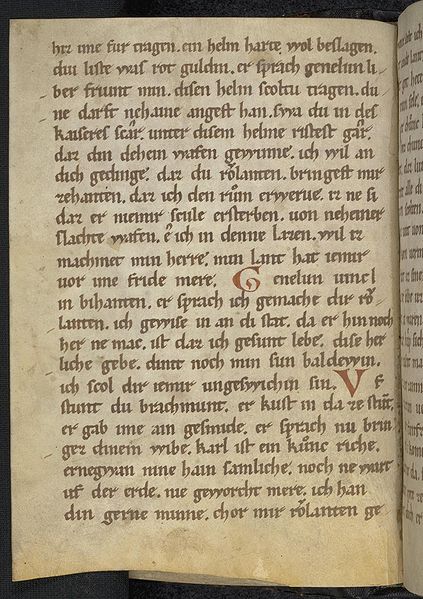 hiz ime fur tragen. ein helm harte wol beslagen.
diu liste was rot guldin. er sprach genelun li
ber friunt min. disen helm scoltu tragen. du
ne darft nehaine angest han. swa du in des
kaiseres scar. unter disem helme ristest gar.
daz din dehein wafen gewinne. ich wil an
dich gedinge. daz du rŏlanten. bringest mir
zehanten. daz ich den rům erwerue. er ne si
daz er uiemir scule ersterben. uon neheiner
slachte wafen. e ich in denne lazen. wil er
machmet min herre. min lant hat iemir
uor ime fride mere. Genelun uincl
in bihanten. er sprach ich gemache dir rŏ
lanten. ich gewise in an di stat. da er hin noch
her ne mac. ist daz ich gesunt lebe. dise her
liche gebe. dinit noch min sun baldewin.
ich scol dir iemir ungeswichin sin. Vf
stunt du brachmunt. er kust in da ze stunt.
er gab ime ain gesmide. er sprach nu brin
gez dinem wibe. karl ist ein kůnc riche.
ernegwan nine hain samliche. noch ne wart
uf der erde. nie geworcht mere. ich han
din gerne minne. chor mir rŏlanten ge